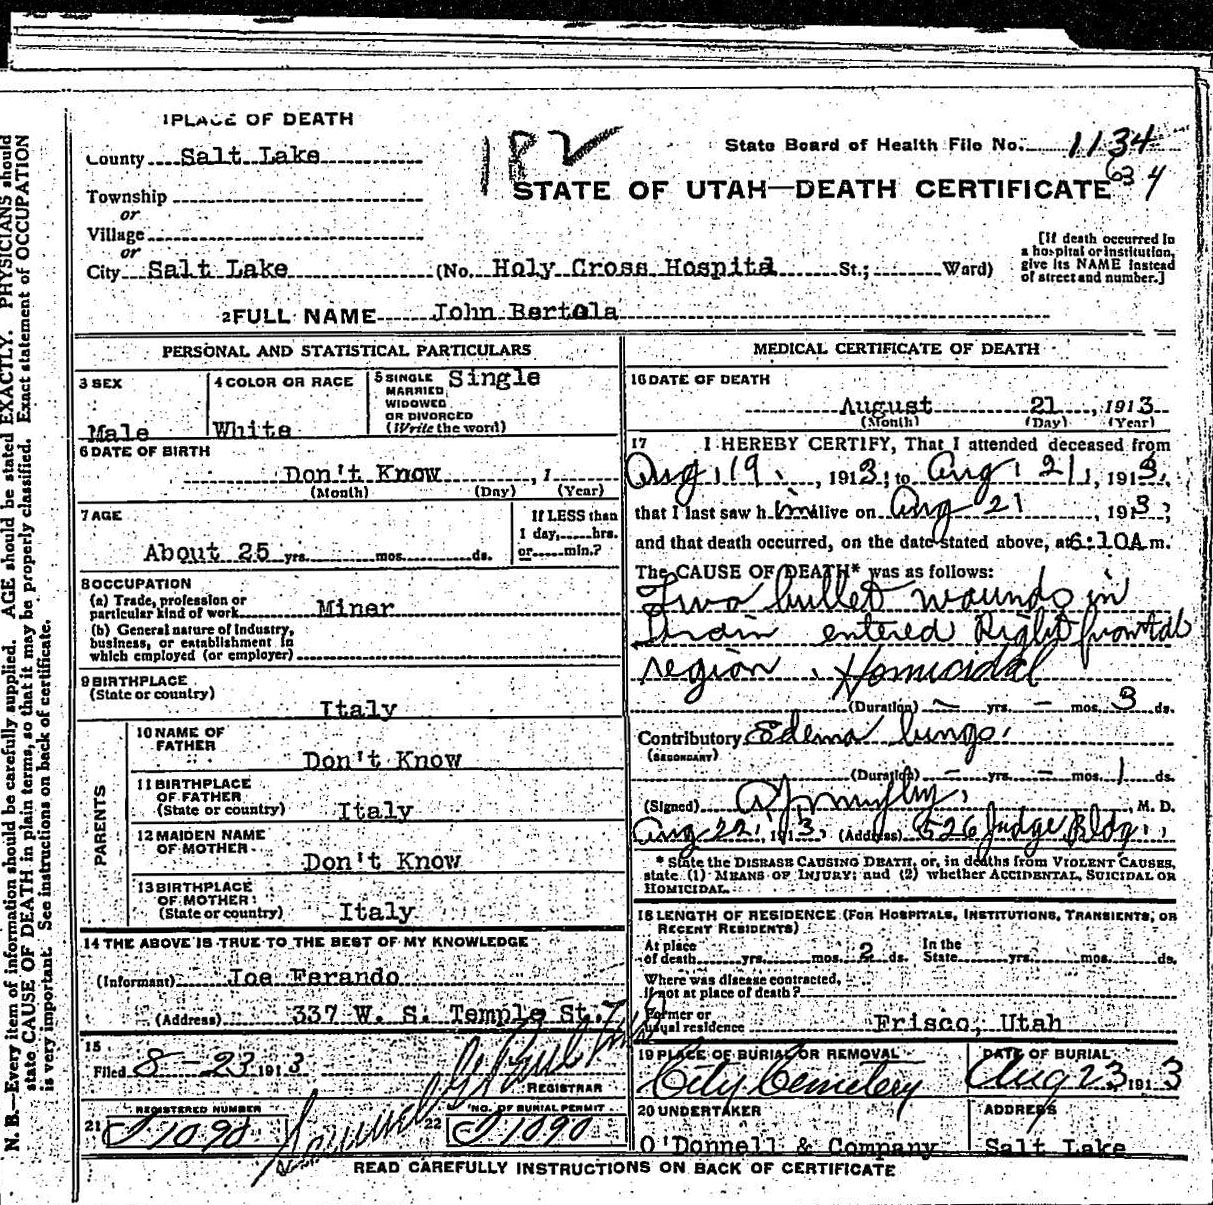 1 PLACE OF DEATH
County Salt Lake
Township
or
Village
or
City Salt Lake (No. Holy Cross Hospital St.; Ward)
182
State Board of Health File No. 1134
634
STATE OF UTAH—DEATH CERTIFICATE
[If death occurred in
a hospital or institution,
give its NAME instead
of street and number.]
2 FULL NAME John Bertola
PERSONAL AND STATISTICAL PARTICULARS
3 SEX
Male
4 COLOR OR RACE
White
5 SINGLE Single
MARRIED,
WIDOWED
OR DIVORCED
(Write the word)
6 DATE OF BIRTH
Don't Know , 1
(Month) (Day) (Year)
7 AGE
About 25 yrs. mos. ds.
If LESS than
1 day, hrs.
or min.?
8 OCCUPATION
(a) Trade, profession or
particular kind of work Miner
(b) General nature of Industry,
business, or establishment in
which employed (or employer)
9 BIRTHPLACE
(State or country)
Italy
PARENTS
10 NAME OF
FATHER
Don't Know
11 BIRTHPLACE
OF FATHER
(State or country) Italy
12 MAIDEN NAME
OF MOTHER
Don't Know
13 BIRTHPLACE
OF MOTHER
(State or country) Italy
14 THE ABOVE IS TRUE TO THE BEST OF MY KNOWLEDGE
(Informant) Joe Ferando
(Address) 337 W. S. Temple St.
15
Filed 8-23 1913
REGISTRAR
REGISTERED NUMBER
21 1090
NO. OF BURIAL PERMIT
22 1090
MEDICAL CERTIFICATE OF DEATH
16 DATE OF DEATH
August 21, 1913
(Month) (Day) (Year)
17 I HEREBY CERTIFY, That I attended deceased from
Aug, 19, 1913; to Aug, 21, 1913,
that I last saw him alive on Aug 21, 1913;
and that death occurred, on the date stated above, at 6:10A m.
The CAUSE OF DEATH* was as follows:
Two bullet wounds in
brain entered Right frontal
region. Homicidal
(Duration) — yrs. — mos. 3 ds.
Contributory Edema lungs.
(SECONDARY)
(Duration) — yrs. — mos. 1 ds.
(Signed) M. D.
Aug 22, 1913, (Address) 526 Judge Bldg.
* State the DISEASE CAUSING DEATH, or, in deaths from VIOLENT CAUSES,
state (1) MEANS OF INJURY; and (2) whether ACCIDENTAL, SUICIDAL OR
HOMICIDAL.
18 LENGTH OF RESIDENCE (FOR HOSPITALS, INSTITUTIONS, TRANSIENTS, OR
RECENT RESIDENTS)
At place
of death yrs. mos. 2 ds. In the
State yrs. mos. ds.
Where was disease contracted,
if not at place of death?
Former or
usual residence Frisco, Utah
19 PLACE OF BURIAL OR REMOVAL
City Cemetery
DATE OF BURIAL
Aug 23, 1913
20 UNDERTAKER
O'Donnell & Company
ADDRESS
Salt Lake
READ CAREFULLY INSTRUCTIONS ON BACK OF CERTIFICATE
N. B.—Every item of information should be carefully supplied. AGE should be stated EXACTLY. PHYSICIANS should
state CAUSE OF DEATH in plain terms, so that it may be properly classified. Exact statement of OCCUPATION
is very important. See instructions on back of certificate.